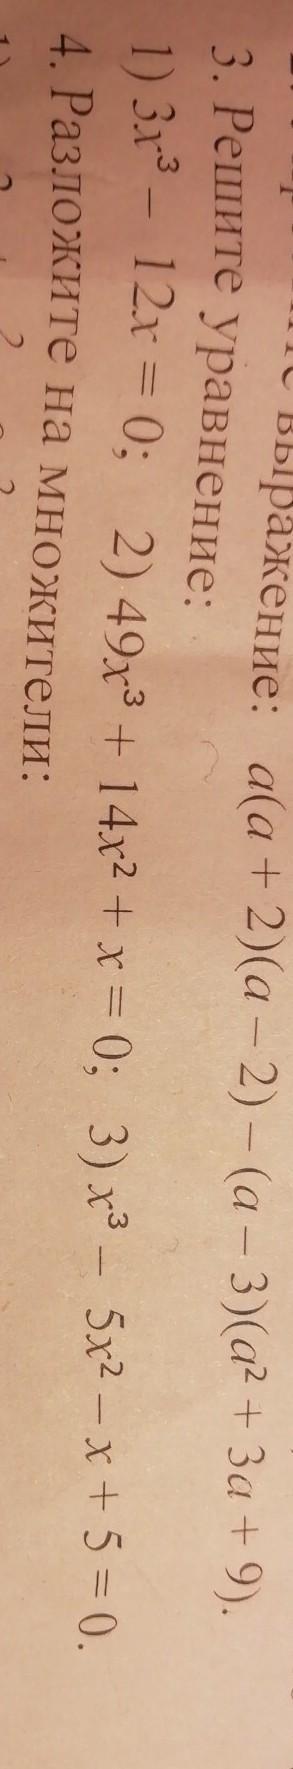 выражение: a(a + 2)(a − 2) − (a − 3)(a² + 3a + 9).
3. Решите уравнение:
1) 3x³ − 12x = 0; 2) 49x³ + 14x² + x = 0; 3) x³ − 5x² − x + 5 = 0.
4. Разложите на множители: